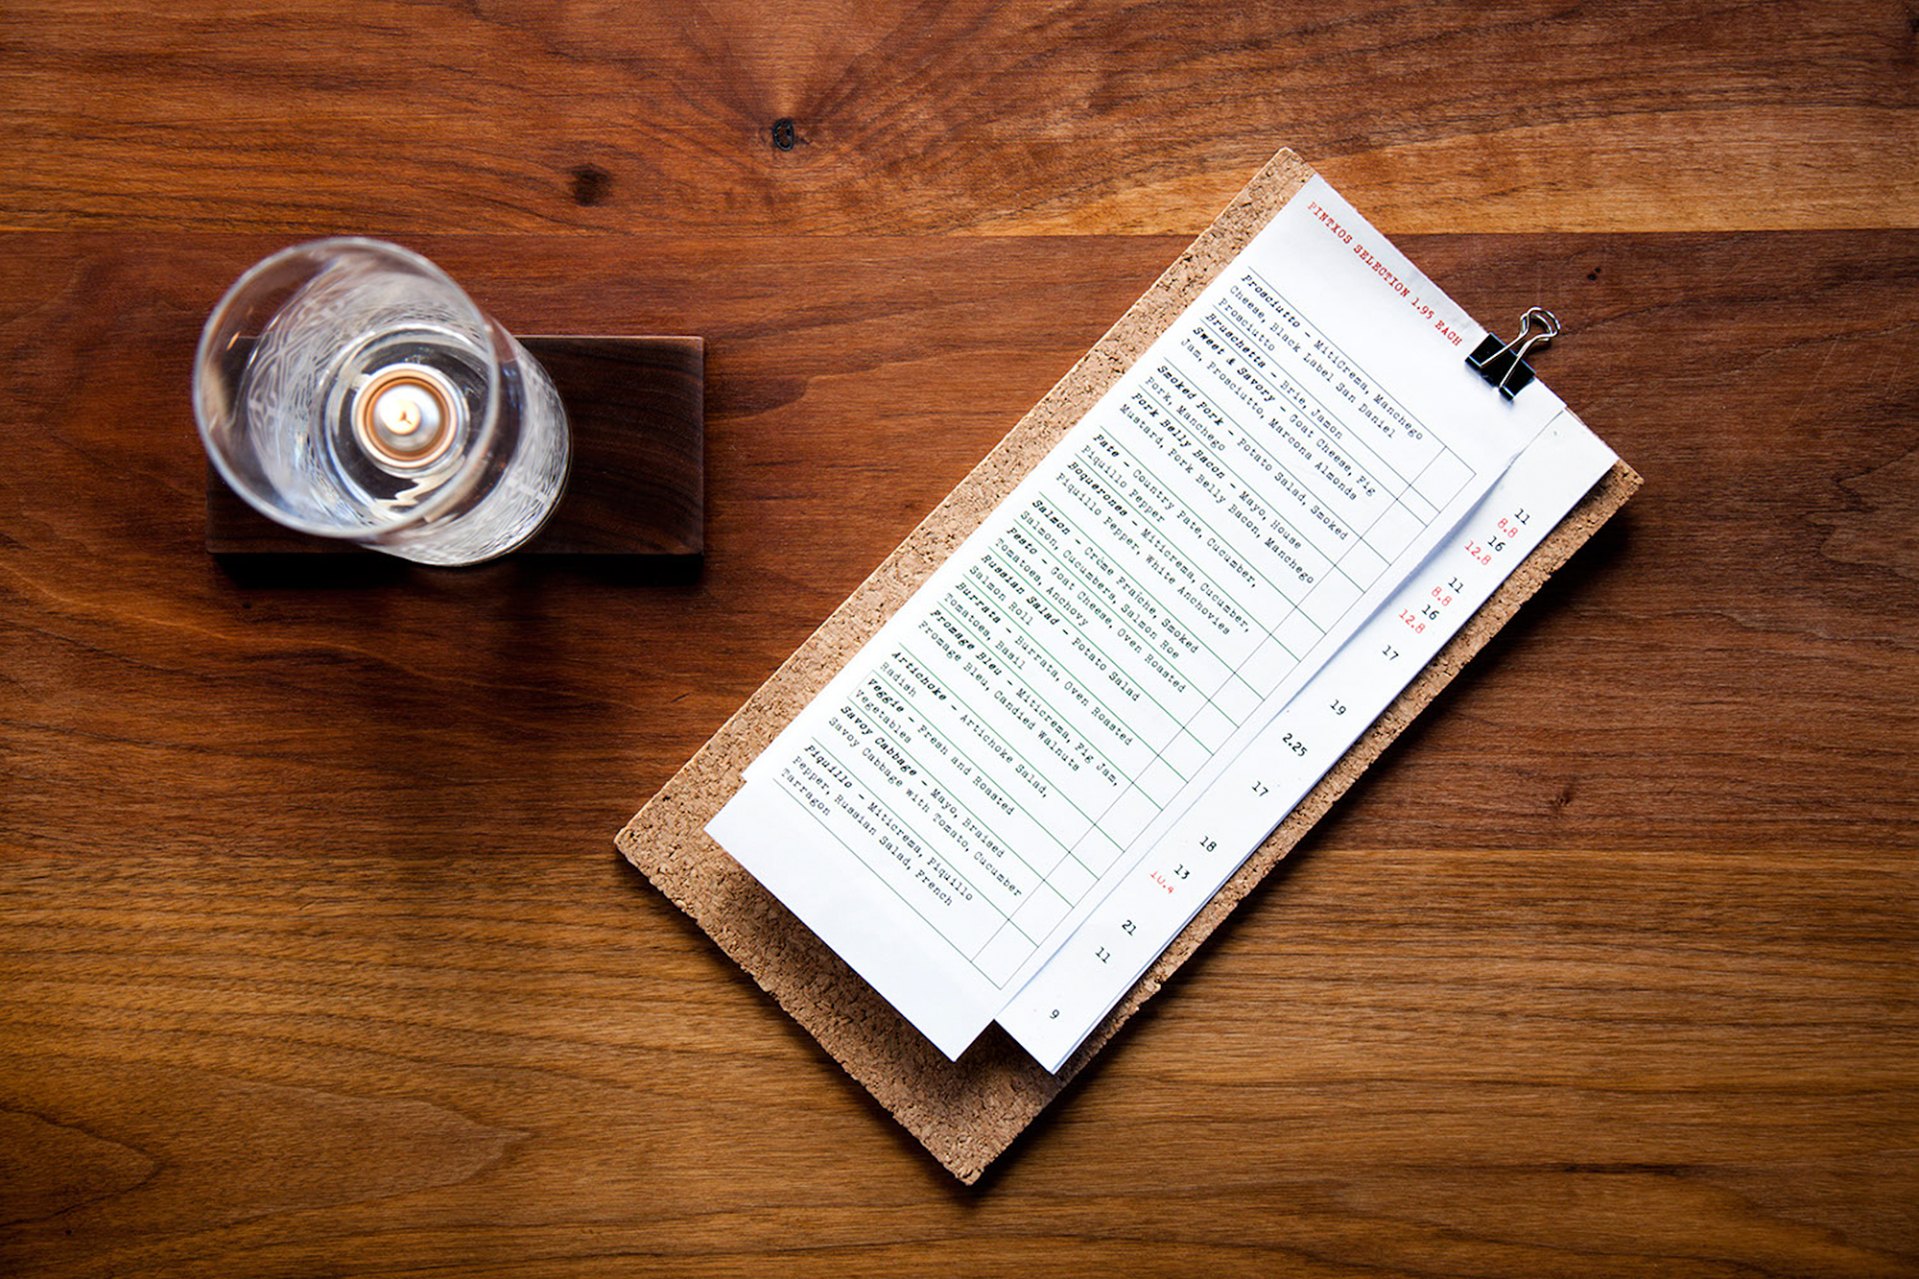 PINTXOS SELECTION 1.95 EACH
Prosciutto - MitiCrema, Manchego
Cheese, Black Label San Daniel
Prosciutto
Bruschetta - Brie, Jamon
Sweet & Savory - Goat Cheese, Fig
Jam, Prosciutto, Marcona Almonds
Smoked Pork - Potato Salad, Smoked
Pork, Manchego
Pork Belly Bacon - Mayo, House
Mustard, Pork Belly Bacon, Manchego
Pate - Country Pate, Cucumber,
Piquillo Pepper
Boquerones - Miticrema, Cucumber,
Piquillo Pepper, White Anchovies
Salmon - Crème Fraîche, Smoked
Salmon, Cucumbers, Salmon Roe
Pesto - Goat Cheese, Oven Roasted
Tomatoes, Anchovy
Russian Salad - Potato Salad
Salmon Roll
Burrata - Burrata, Oven Roasted
Tomatoes, Basil
Fromage Bleu - Miticrema, Fig Jam,
Fromage Bleu, Candied Walnuts
Artichoke - Artichoke Salad,
Radish
Veggie - Fresh and Roasted
Vegetables
Savoy Cabbage - Mayo, Braised
Savoy Cabbage with Tomato, Cucumber
Piquillo - Miticrema, Piquillo
Pepper, Russian Salad, French
Tarragon
11
8.8
16
12.8
11
8.8
16
12.8
17
19
2.25
17
18
13
10.4
21
11
9